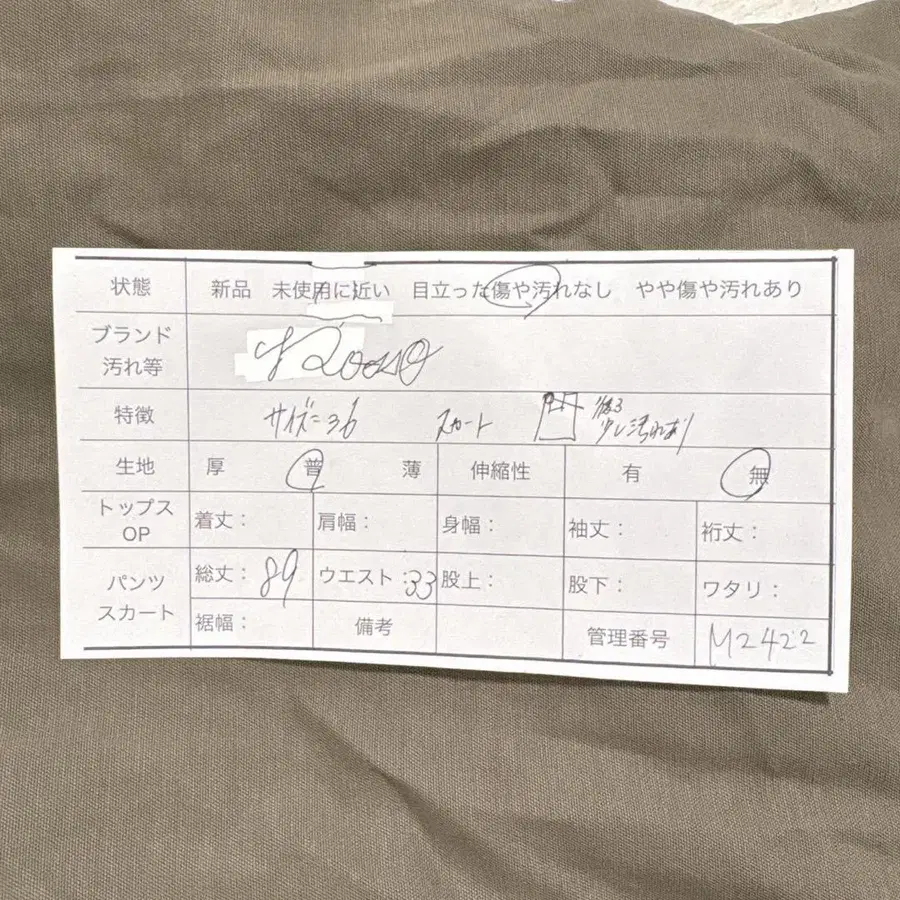 状態 新品 未使用に近い 目立った傷や汚れなし やや傷や汚れあり
ブランド
汚れ等
特徴 サイズ=36 スカート 後ろ
少し汚れあり
生地 厚 普 薄 伸縮性 有 無
トップス
OP
着丈: 肩幅: 身幅: 袖丈: 裄丈:
パンツ
スカート
総丈:89 ウエスト:33 股上: 股下: ワタリ:
裾幅: 備考 管理番号 M2422